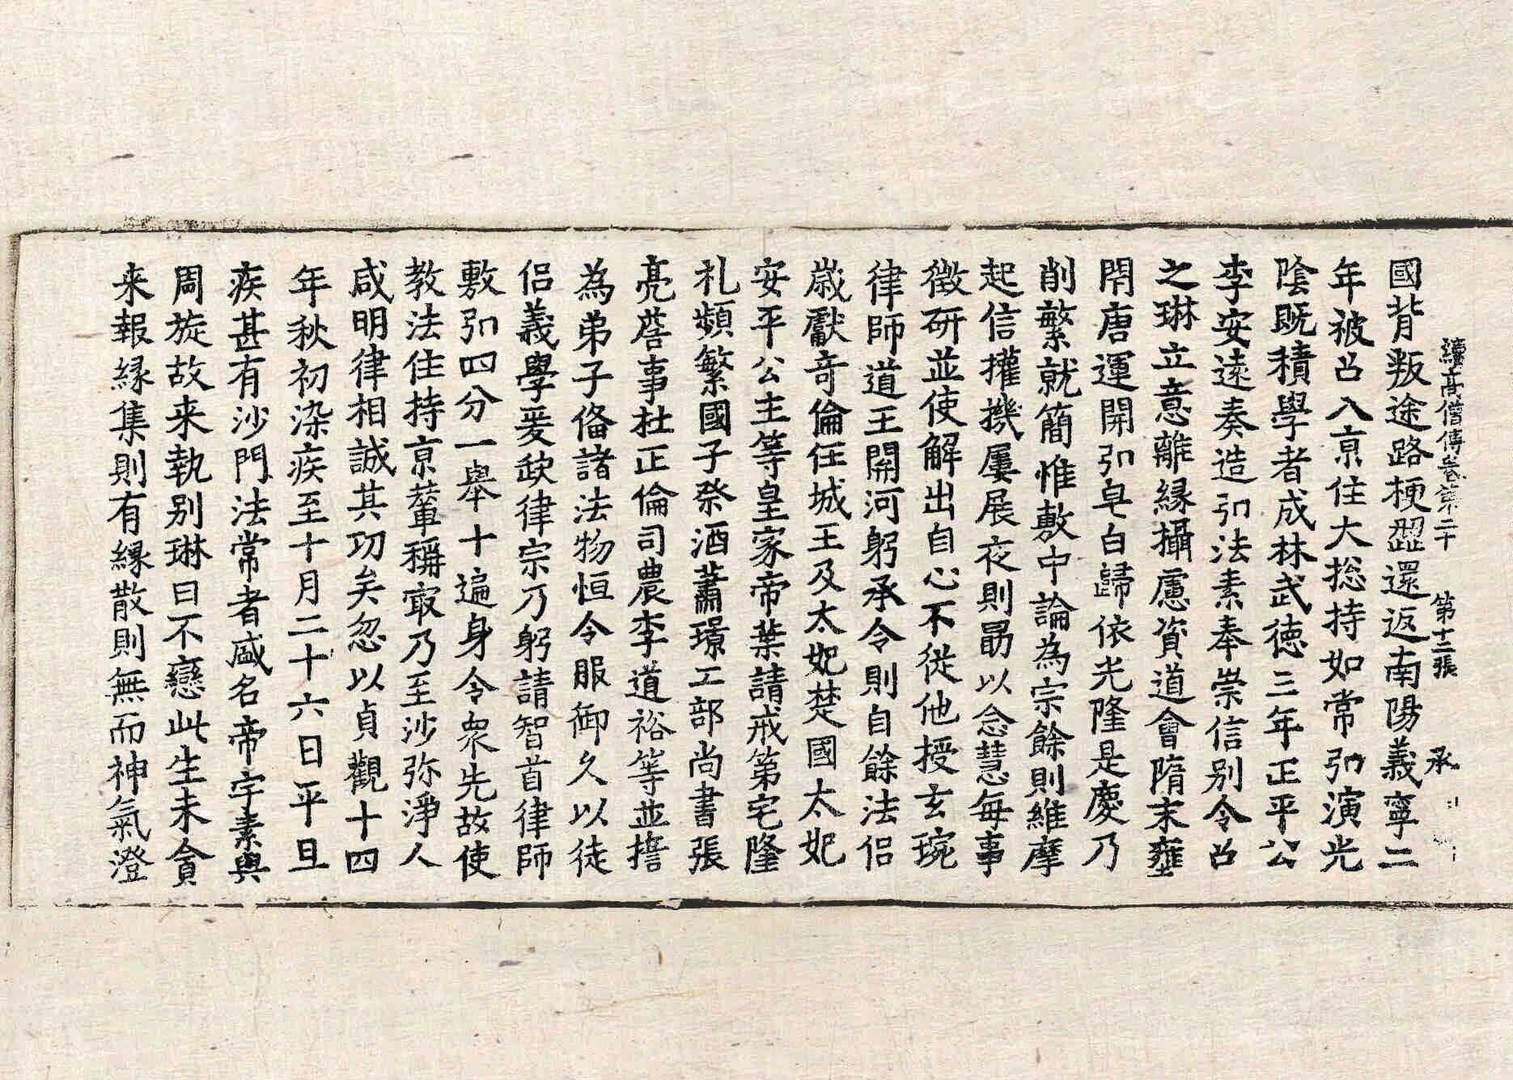 續高僧傳卷第二十 第十三張 承
國背叛途路梗澀還返南陽義寧二
年被召入京住大捴持如常弘演光
陰既積學者成林武徳三年正平公
李安遠奏造弘法素奉崇信别令召
之琳立意離縁攝慮資道會隋末壅
閉唐運開弘皂白歸依光隆是慶乃
削繁就簡惟敷中論為宗餘則維摩
起信權機屢展夜則勗以念慧每事
徵研並使解出自心不從他授玄琬
律師道王開河躬承令則自餘法侣
嵗獻奇倫任城王及太妃楚國太妃
安平公主等皇家帝葉請戒第宅隆
札頻繁國子祭酒蕭璟工部尚書張
亮詹事杜正倫司農李道裕等並誓
為弟子俻諸法物恒令服御久以徒
侣義學爰欽律宗乃躬請智首律師
敷弘四分一舉十遍身令衆先故使
教法住持京輦稱㝡乃至沙弥淨人
咸明律相誠其功矣忽以貞觀十四
年秋初染疾至十月二十六日平旦
疾甚有沙門法常者盛名帝宇素與
周旋故来執别琳曰不戀此生未貪
来報縁集則有縁散則無而神氣澄